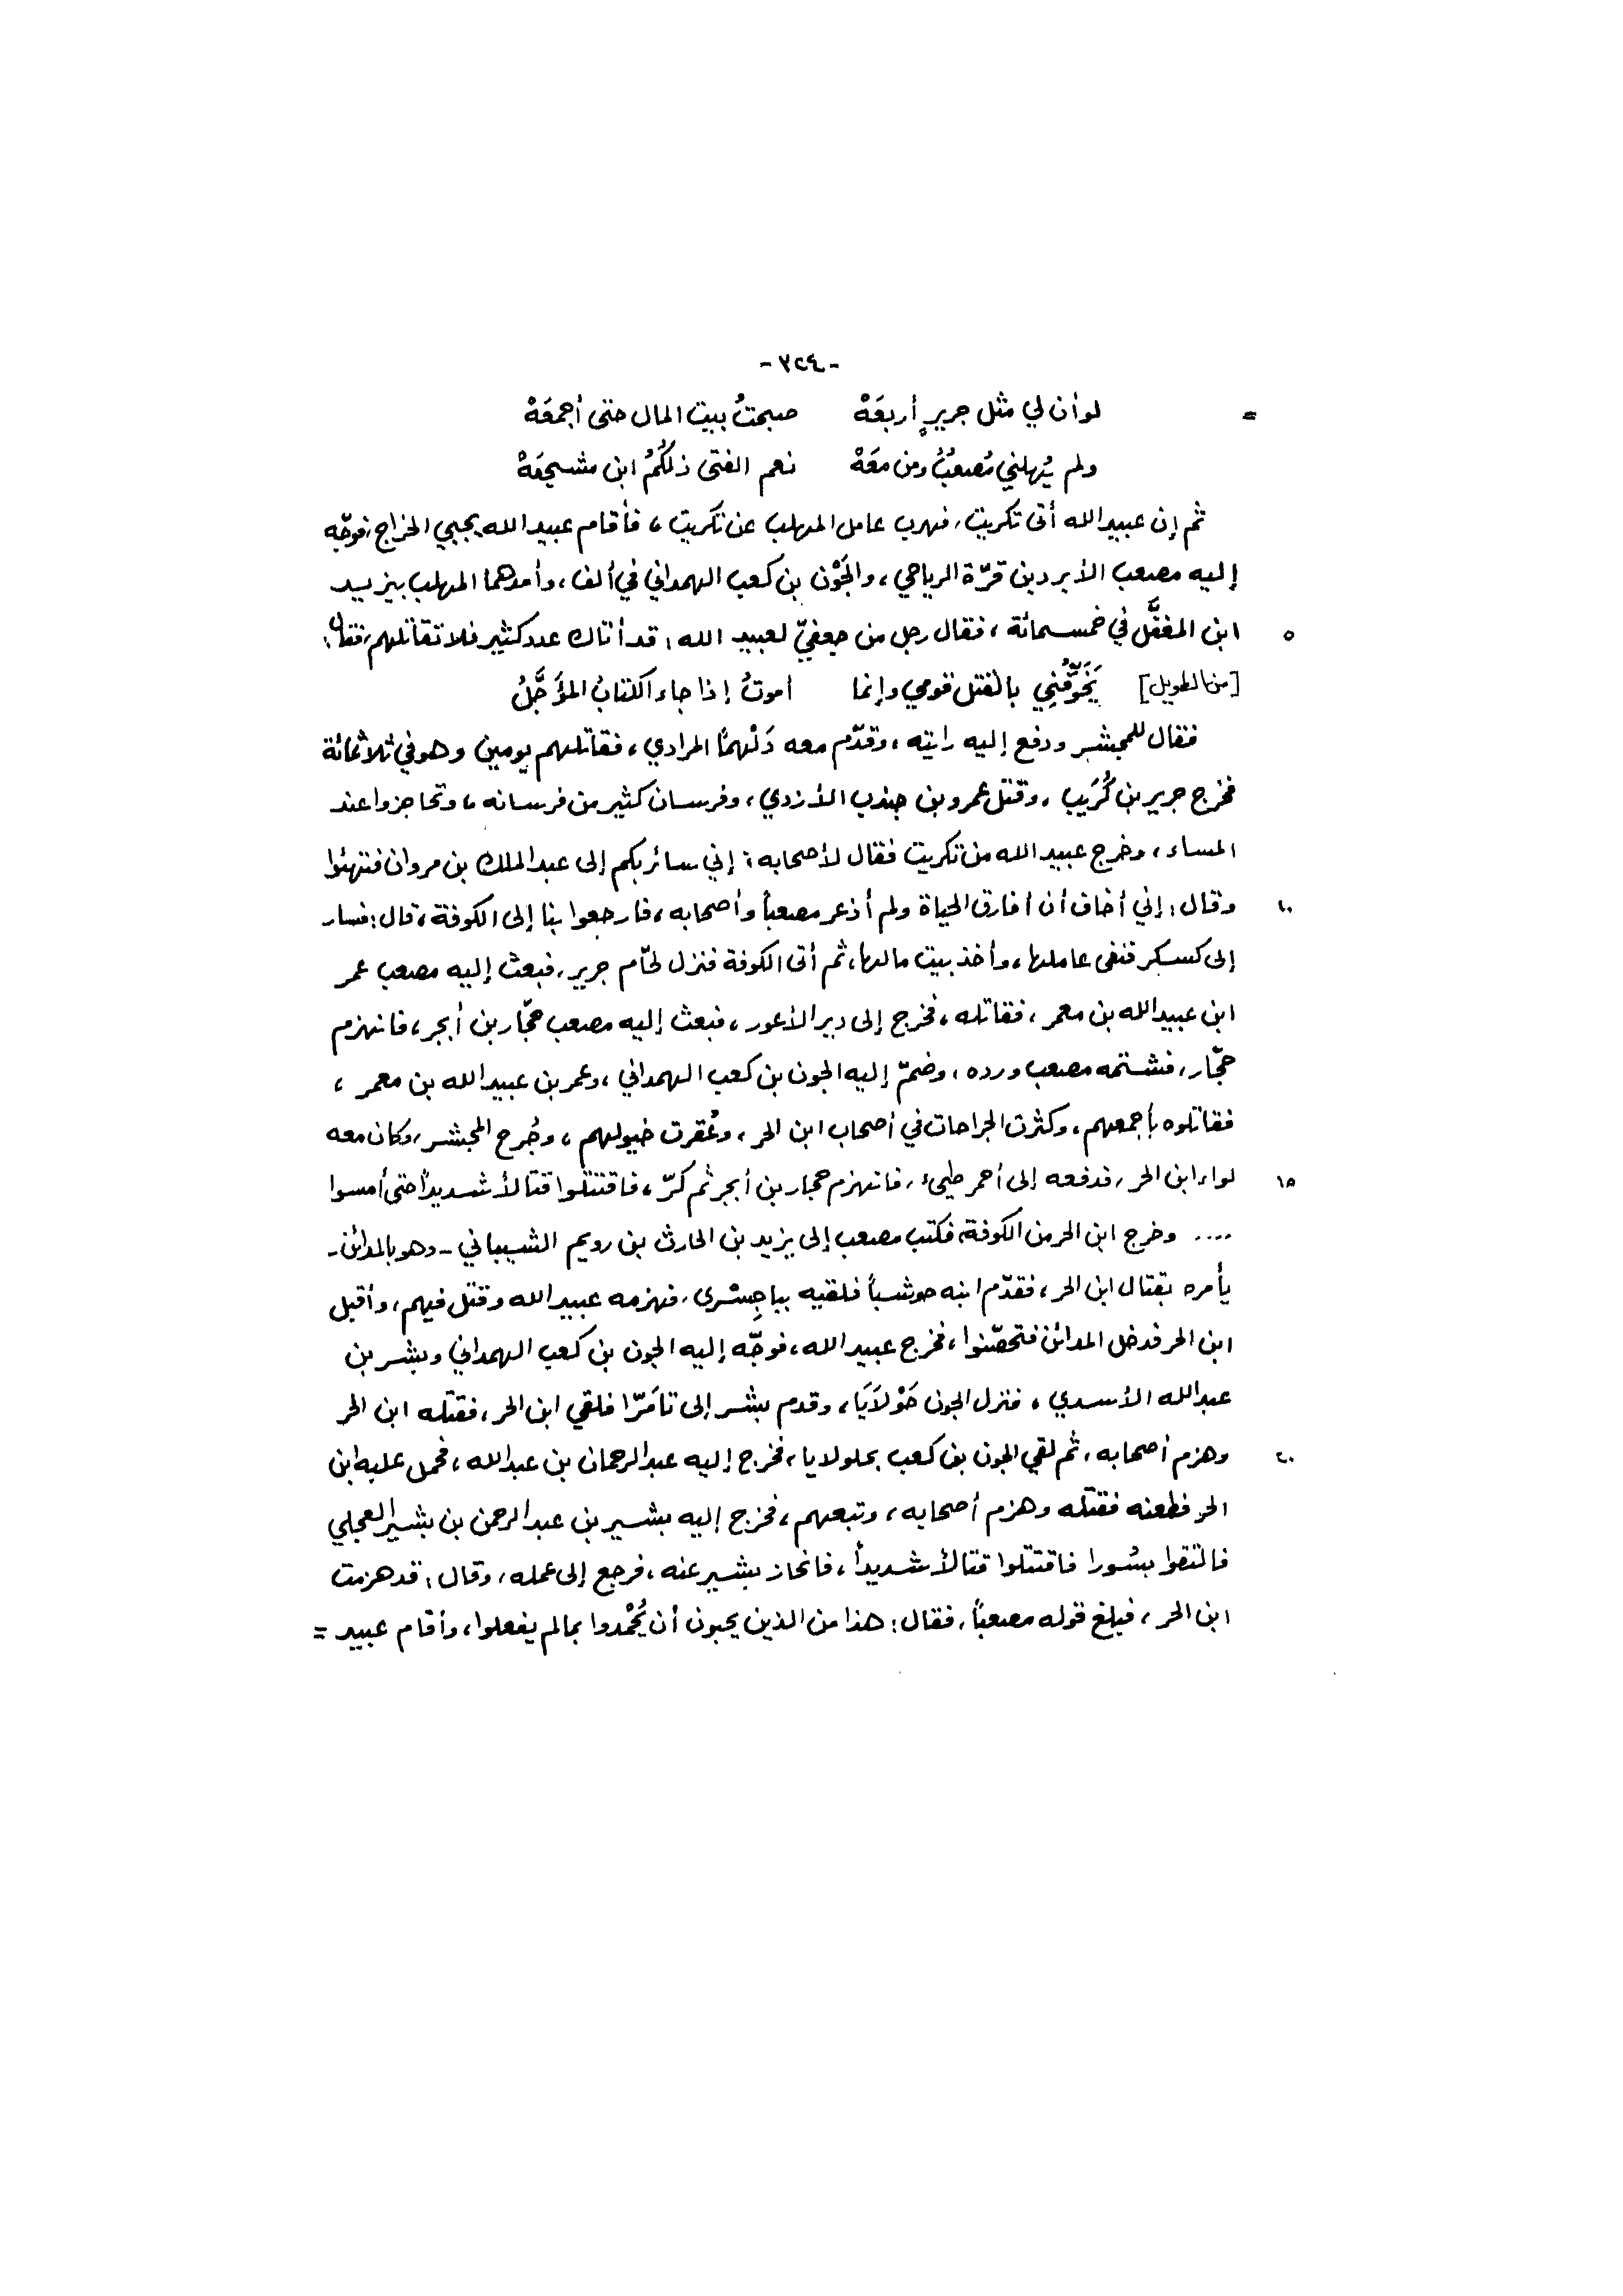 -٣٢٤-
= لو أن لي مثل جريرٍ أربعَهْ صبحتُ ببيت المال حتى أجمعَهْ
ولم يُهلني مُصعبٌ ومن معَهْ نعم الفتى ذلكُمُ ابن مشجعَهْ
ثم إن عبيد الله أتى تكريت، فهرب عامل المهلب عن تكريت، فأقام عبيد الله يجبي الخراج، فوجّه
إليه مصعب الأبرد بن قرّة الرياحي، والجَوْن بن كعب الهمداني في ألف، وأمدهما المهلب بيزيد
٥ ابن المغفَّل في خمسمائة، فقال رجل من جعفيّ لعبيد الله: قد أتاك عدد كثير فلا تقاتلهم، فقال:
[من الطويل] يَخَوِّفُنِي بالقتل قومي وإنما أموتُ إذا جاء الكتابُ المؤَجَّلُ
فقال للمجشر ودفع إليه رايته، وقدّم معه دَلْهماً المرادي، فقاتلهم يومين وهو في ثلاثمائة
فخرج جرير بن كُرَيب، وقتل عمرو بن جندب الأزدي، وفرسان كثير من فرسانه، وتحاجزوا عند
المساء، وخرج عبيد الله من تكريت فقال لأصحابه: إني سائر بكم إلى عبد الملك بن مروان فتهيئوا
١٠ وقال: إني أخاف أن أفارق الحياة ولم أذعر مصعباً وأصحابه، فارجعوا بنا إلى الكوفة، قال: فسار
إلى كسكر فنفى عاملها، وأخذ بيت مالها، ثم أتى الكوفة فنزل لحّام جرير، فبعث إليه مصعب عمر
ابن عبيد الله بن معمر، فقاتله، فخرج إلى دير الأعور، فبعث إليه مصعب حجّار بن أبجر، فانهزم
حجّار، فشتمه مصعب ورده، وضمّ إليه الجون بن كعب الهمداني، وعمر بن عبيد الله بن معمر،
فقاتلوه بأجمعهم، وكثرت الجراحات في أصحاب ابن الحر، وعُقرت خيولهم، وجُرح المجشر، وكان معه
١٥ لواء ابن الحر، فدفعه إلى أحمر طيىء، فانهزم حجار بن أبجر ثم كرّ، فاقتتلوا قتالاً شديداً حتى أمسوا
.... وخرج ابن الحر من الكوفة، فكتب مصعب إلى يزيد بن الحارث بن رويم الشيباني - وهو بالمدائن -
يأمره بقتال ابن الحر، فقدّم ابنه حوشباً فلقيه بباجِسْرى، فهزمه عبيد الله وقتل فيهم، وأقبل
ابن الحر فدخل المدائن فتحصّنوا، فخرج عبيد الله، فوجّه إليه الجون بن كعب الهمداني وبشر بن
عبد الله الأسدي، فنزل الجون حَوْلاَيَا، وقدم بشر إلى تامَرّا فلقي ابن الحر، فقتله ابن الحر
٢٠ وهزم أصحابه، ثم لقي الجون بن كعب بحلولايا، فخرج إليه عبد الرحمان بن عبد الله، فحمل عليه ابن
الحر فطعنه فقتله وهزم أصحابه، وتبعهم، فخرج إليه بشير بن عبد الرحمن بن بشير العجلي
فالتقوا بسورا فاقتتلوا قتالاً شديداً، فانحاز بشير عنه، فرجع إلى عمله، وقال: قد هزمت
ابن الحر، فبلغ قوله مصعباً، فقال: هذا من الذين يحبون أن يُحْمدوا بما لم يفعلوا، وأقام عبيد =